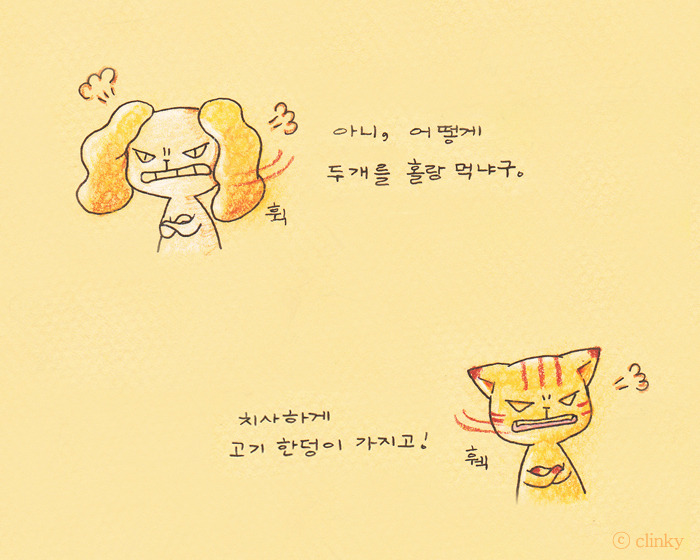 아니, 어떻게
두개를 홀랑 먹냐구.
휙
치사하게
고기 한덩이 가지고!
휙
ⓒ clinky